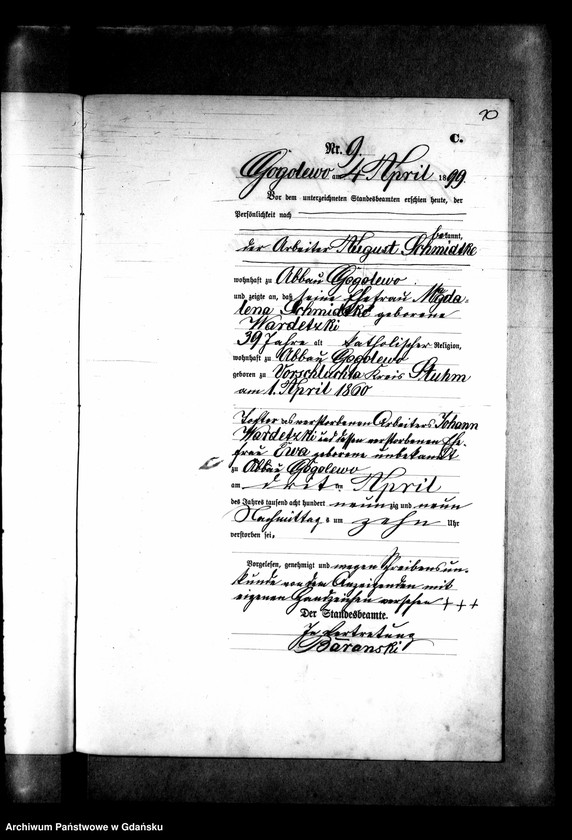 70
C.
Nr. 9.
Gogolewo am 4 April 1899.
Vor dem unterzeichneten Standesbeamten erschien heute, der
Persönlichkeit nach
bekannt,
der Arbeiter August Schmidtke
wohnhaft zu Abbau Gogolewo
und zeigte an, daß seine Ehefrau Magda-
lena Schmidtke geborene
Wardetzki
39 Jahre alt katholischer Religion,
wohnhaft zu Abbau Gogolewo
geboren zu Kreis Stuhm
am 1. April 1860
Tochter des verstorbenen Arbeiters Johann
Wardetzki und dessen verstorbenen Ehe-
frau Ewa geborene unbekannt
zu Abbau Gogolewo
am dritten April
des Jahres tausend acht hundert neunzig und neun
Nachmittags um zehn Uhr
verstorben sei.
Vorgelesen, genehmigt und wegen Schreibensun-
kunde von dem Anzeigenden mit
eigenen Handzeichen versehen +++
Der Standesbeamte.
In Vertretung
Baranski
Archiwum Państwowe w Gdańsku